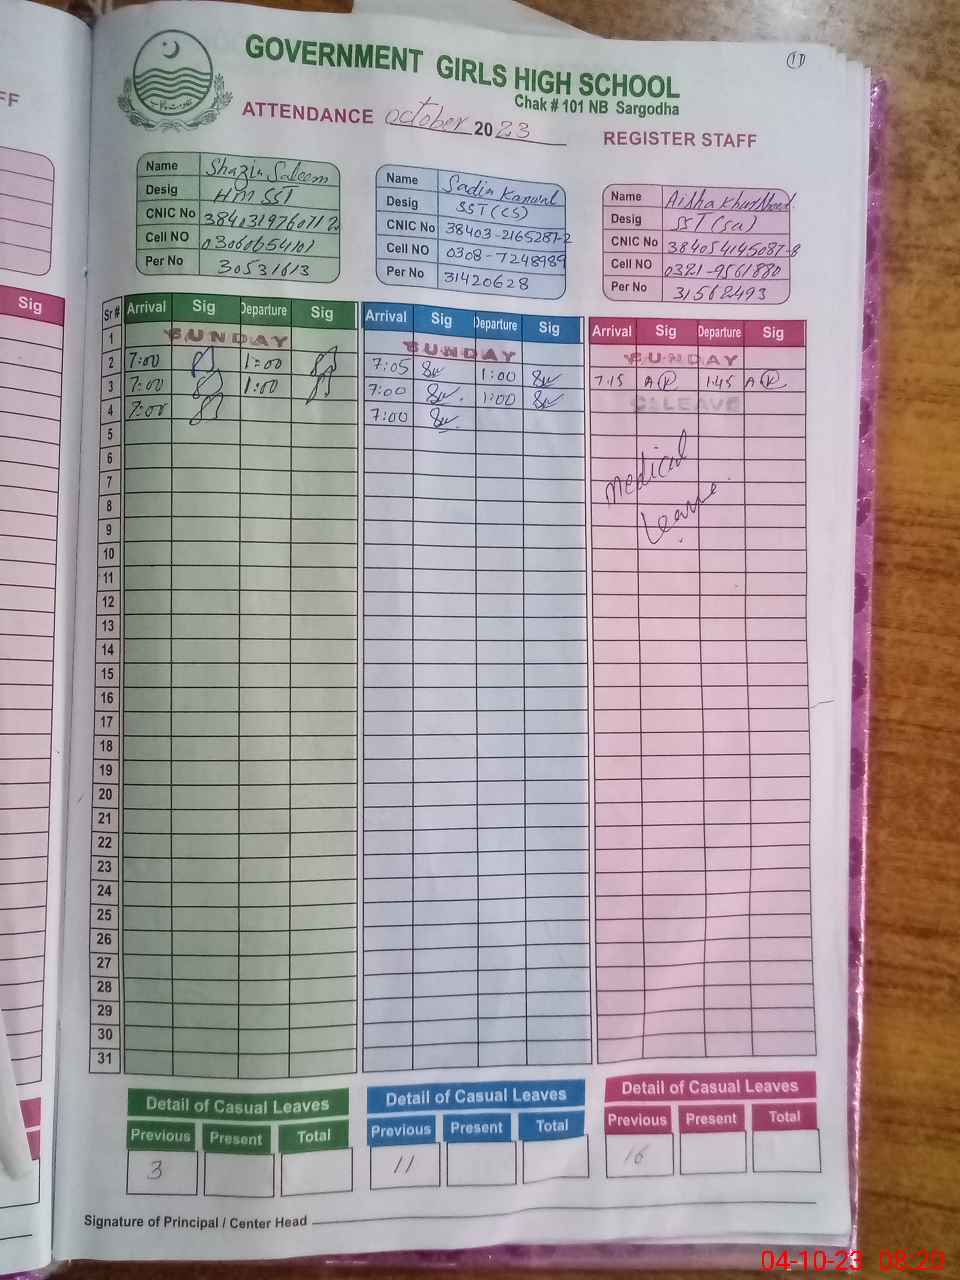 FF
Sig
11
GOVERNMENT GIRLS HIGH SCHOOL
Chak # 101 NB Sargodha
ATTENDANCE October 2023
REGISTER STAFF
Name Shazin Saleem
Desig HM SST
CNIC No
Cell NO 03060654101
Per No 30531613
Name Sadia Kanwal
Desig SST (CS)
CNIC No 38403-2165287-2
Cell NO 0308-7248989
Per No 31420628
Name Aisha Khursheed
Desig SST (Sc)
CNIC No 384054145087-8
Cell NO 0321-9561880
Per No 31568493
Sr # Arrival Sig Departure Sig Arrival Sig Departure Sig Arrival Sig Departure Sig
1 SUNDAY SUNDAY SUNDAY
2 7:00 1:00 7:05 1:00 7:15 A K 1:45 A K
3 7:00 1:00 7:00 1:00 C.LEAVE
4 7:00 7:00
5
6
7
8
9
10
11
12
13
14
15
16
17
18
19
20
21
22
23
24
25
26
27
28
29
30
31
Medical
Leave
Detail of Casual Leaves Detail of Casual Leaves Detail of Casual Leaves
Previous Present Total Previous Present Total Previous Present Total
3 11 16
Signature of Principal / Center Head
04-10-23 08:20